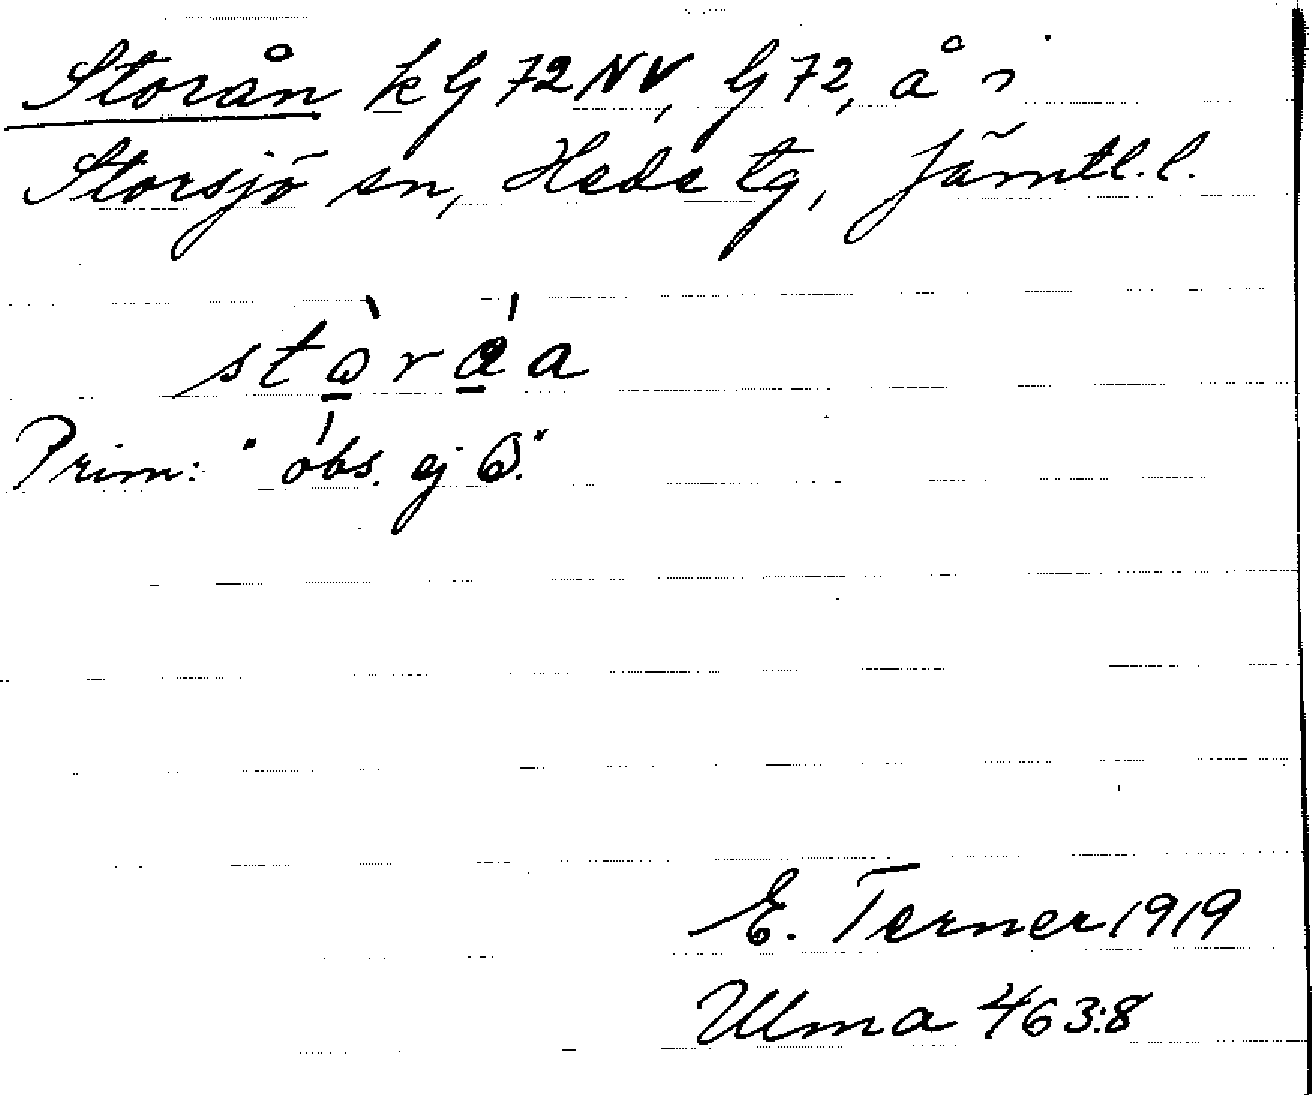 Storån kG 72 NV, G 72, å i
Storsjö sn, Hede tg, Jämtl. l.
Prim: "obs. ej
E. Terner 1919
Ulma 463:8